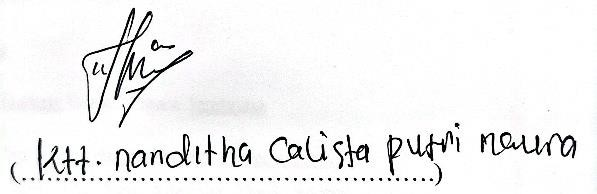 (Ktt. nanditha Calista putri naura)